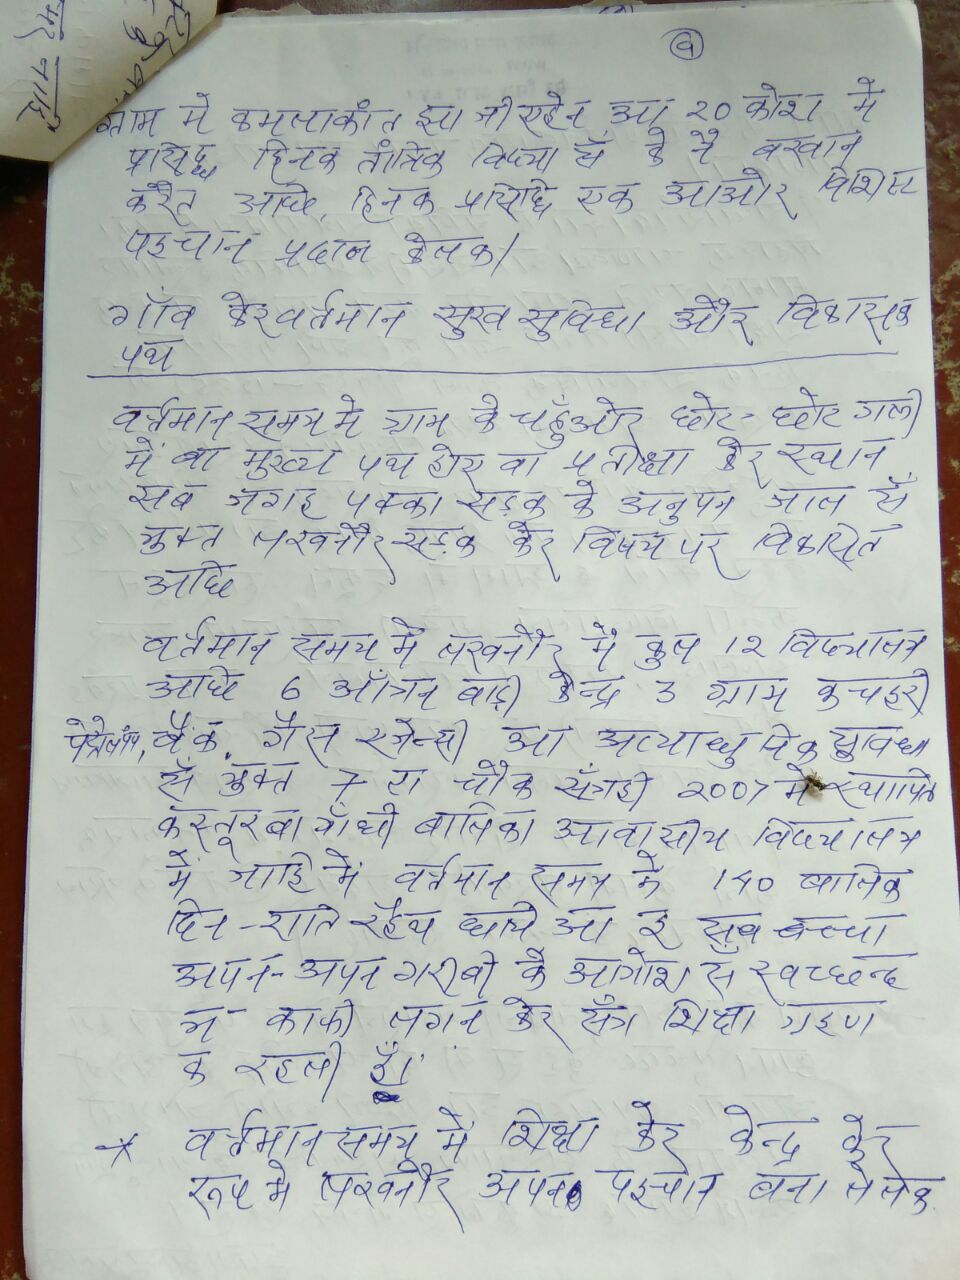 ९
ग्राम में कमलाकांत झा जी एहेन आ २० कोश में
प्रसिद्ध हिनक तांत्रिक विध्या सँ के नै बखान
करैत अछि, हिनक प्रसिद्धि एक आओर विशिष्ट
पहचान प्रदान केलक।
गाँव केर वर्तमान सुख सुविधा और विकासक
पथ
वर्तमान समय मे ग्राम के चहुँओर छोट-छोट गली
में वा मुख्य पथ होए वा प्रतीक्षा केर स्थान
सब जगह पक्का सड़क के अनुपम जाल सँ
युक्त लखनौर सड़क केर विषय पर विकसित
अछि
वर्तमान समय में लखनौर में कुल 12 विध्यालय
अछि 6 आँगनवाड़ी केन्द्र 3 ग्राम कचहरी
पेट्रोलपंप, बैंक, गैस एजेन्सी आ अत्याधुनिक सुविधा
सँ युक्त चौक 2007 मे स्थापित
कस्तूरबा गाँधी बालिका आवासीय विध्यालय
में जाहि में वर्तमान समय में 140 बालिका
दिन-राति रहैथ छथि आ इ सब बच्चा
अपन-अपन गरीबी कै आगोश सँ स्वच्छन्द
भ काफी लगन केर सँग शिक्षा ग्रहण
क रहली हँ।
* वर्तमान समय में शिक्षा केर केन्द्र केर
रूप मे लखनौर अपन पहचान बना लेलक